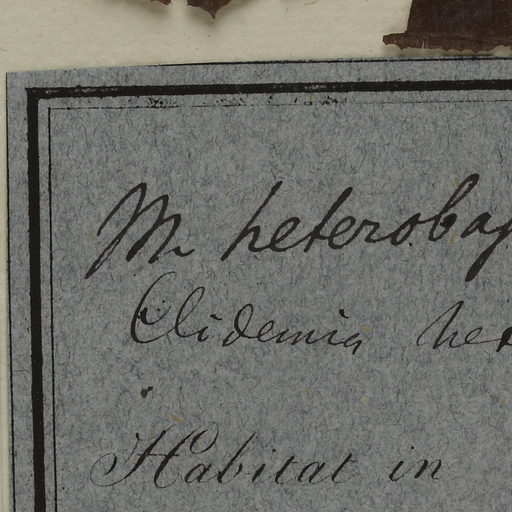 M heterobas
Clidemia het
Habitat in